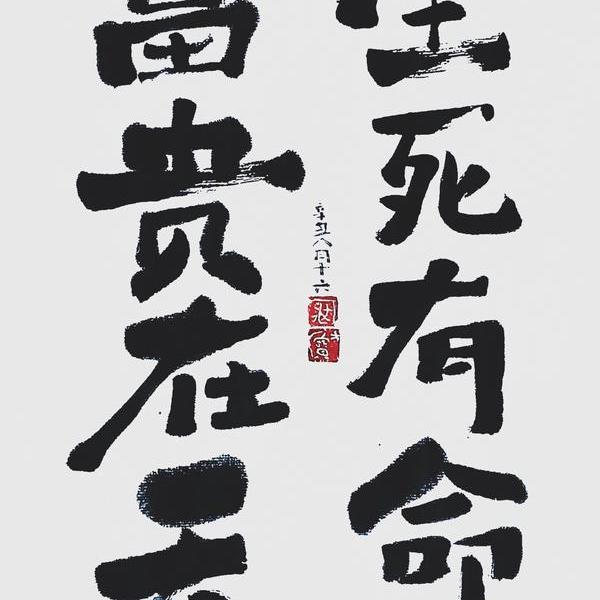 生死有命
富贵在天
辛丑八月十六